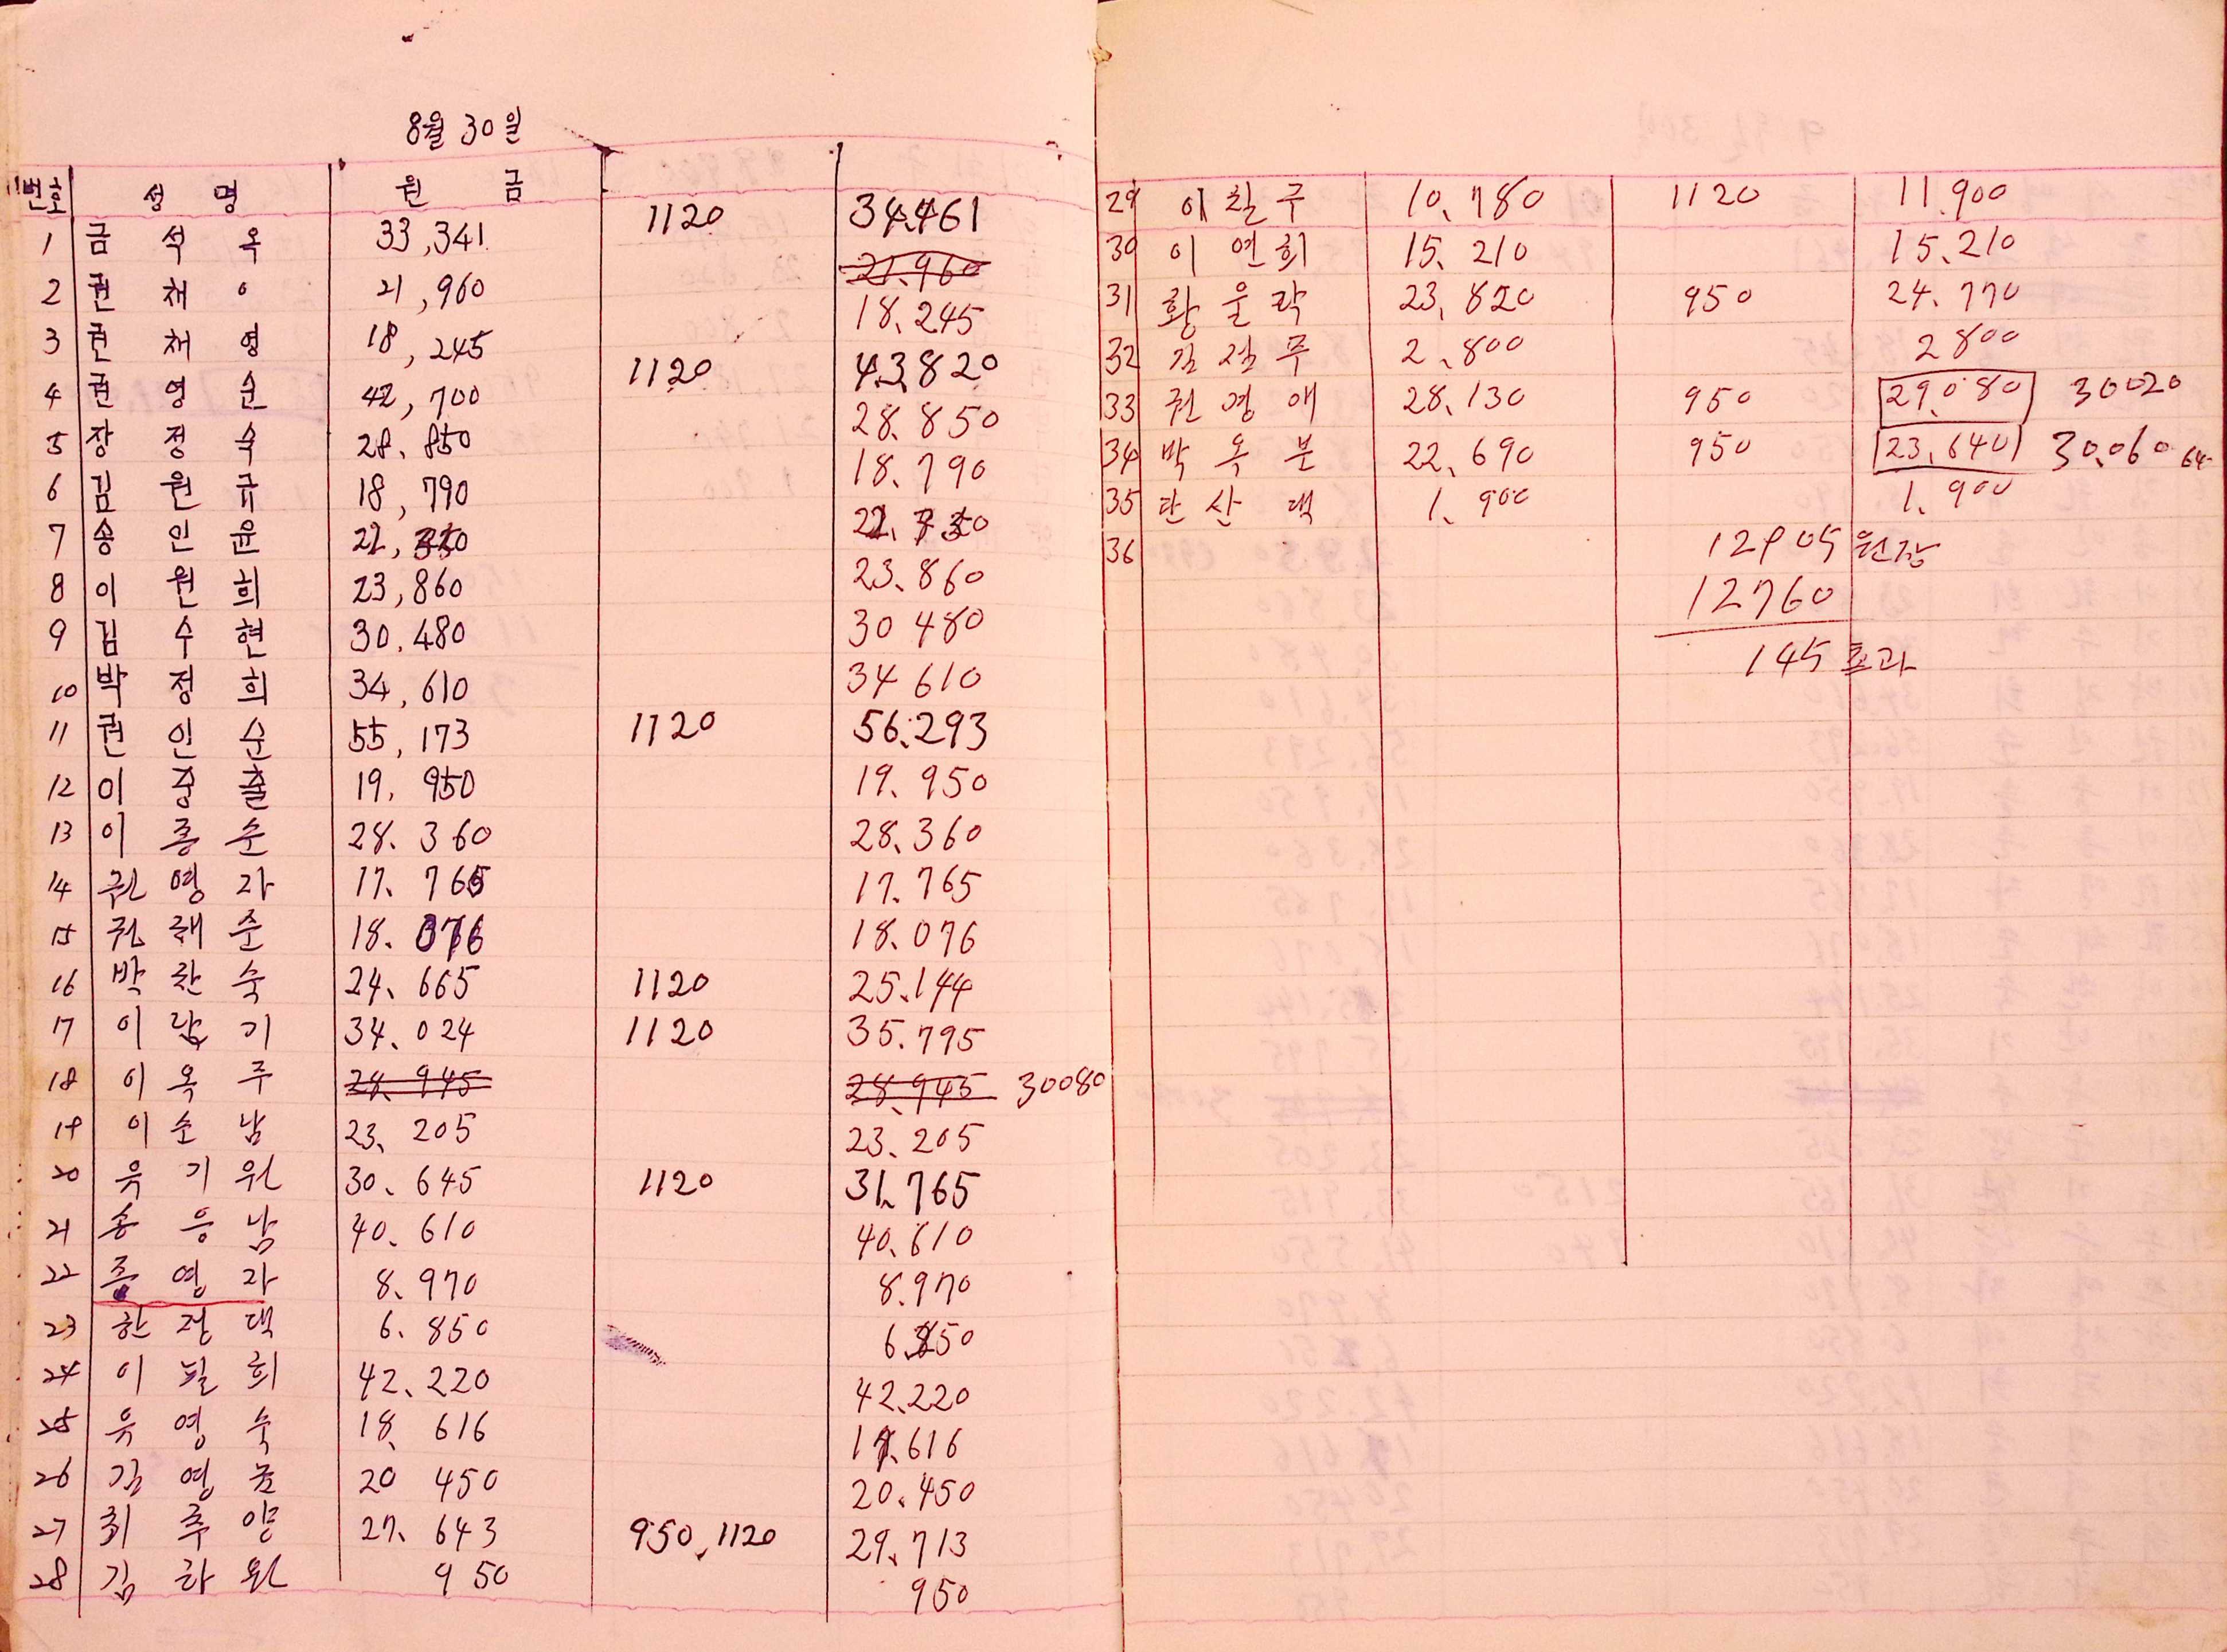 8월 30일
번호 성명 원금
1 금석옥 33,341 1120 34.461
2 권채이 21,960 21.960
3 권채영 18,245 18.245
4 권영순 42,700 1120 43.820
5 장정숙 28.850 28.850
6 김원규 18,790 18.790
7 송인윤
8 이원희 23,860 23.860
9 김수현 30.480 30 480
10 박정희 34,610 34 610
11 권인순 55,173 1120 56.293
12 이중출 19.950 19.950
13 이종순 28.360 28.360
14 권영자 17.765 17.765
15 권해준 18.076 18.076
16 박찬숙 24.665 1120 25.144
17 이락기 34.024 1120 35.795
18 이옥주 28.945 28.945 30080
19 이소남 23.205 23.205
20 유기원 30.645 1120 31.765
21 송응남 40.610 40.610
22 영자 8.970 8.970
23 한정댁 6.850 6.850
24 이필희 42.220 42.220
25 유영숙 18.616
26 김영 20 450 20.450
27 최춘양 27.643 950.1120 29.713
28 김하원 950 950
29 이칠주 10.780 1120 11.900
30 이연희 15.210 15.210
31 황울락 23.820 950 24.770
32 김점무 2.800 2800
33 권영애 28.130 950 29.080 30020
34 박옥분 22.690 950 23.640 30.060
35 단산댁 1.900 1.900
36 12905 원장
12760
145 초과